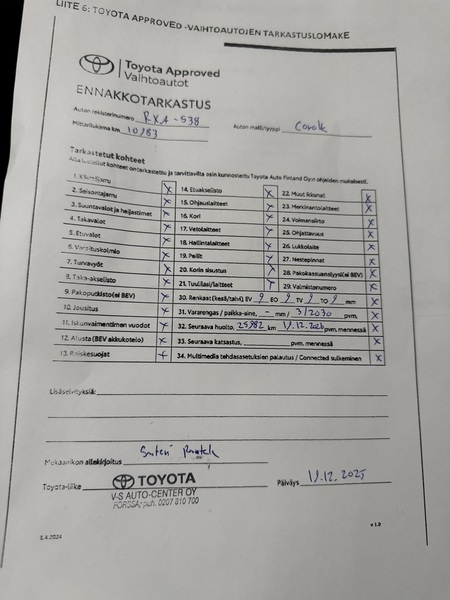 LIITE 6: TOYOTA APPROVED -VAIHTOAUTOJEN TARKASTUSLOMAKE
Toyota Approved
Vaihtoautot
ENNAKKOTARKASTUS
Auton rekisterinumero RXA-538
Mittarilukema km 10983 Auton malli/tyyppi Corolla
Tarkastetut kohteet
Alla luetellut kohteet on tarkastettu ja tarvittavilta osin kunnostettu Toyota Auto Finland Oy:n ohjeiden mukaisesti.
1. Käsijarru X 14. Etuakselisto X 22. Muut ikkunat X
2. Seisontajarru X 15. Ohjauslaitteet X 23. Merkinantolaitteet X
3. Suuntavalot ja heijastimet X 16. Kori X 24. Voimansiirto X
4. Takavalot X 17. Vetolaitteet X 25. Ohjattavuus X
5. Etuvalot X 18. Hallintalaitteet X 26. Lukkolaite X
6. Varoituskolmio X 19. Peilit X 27. Nestepinnat X
7. Turvavyöt X 20. Korin sisustus X 28. Pakokaasuanalyysi(ei BEV) X
8. Taka-akselisto X 21. Tuulilasi/laitteet X 29. Valmistenumero X
9. Pakoputkisto(ei BEV) X 30. Renkaat(kesä/talvi) EV 9 EO 9 TV 9 TO 9 mm X
10. Jousitus X 31. Vararengas / paikka-aine, - mm / 3/2030 pvm, X
11. Iskunvaimentimen vuodot X 32. Seuraava huolto, 25982 km 19.12.2026 pvm, mennessä X
12. Alusta (BEV akkukotelo) X 33. Seuraava katsastus, pvm, mennessä
13. Roiskesuojat X 34. Multimedia tehdasasetuksien palautus / Connected sulkeminen X
Lisäselvityksiä:
Mekaanikon allekirjoitus
Toyota-liike TOYOTA Päiväys 19.12.2025
V-S AUTO-CENTER OY
FORSSA, puh. 0207 810 700
1.4.2024 v 1.0